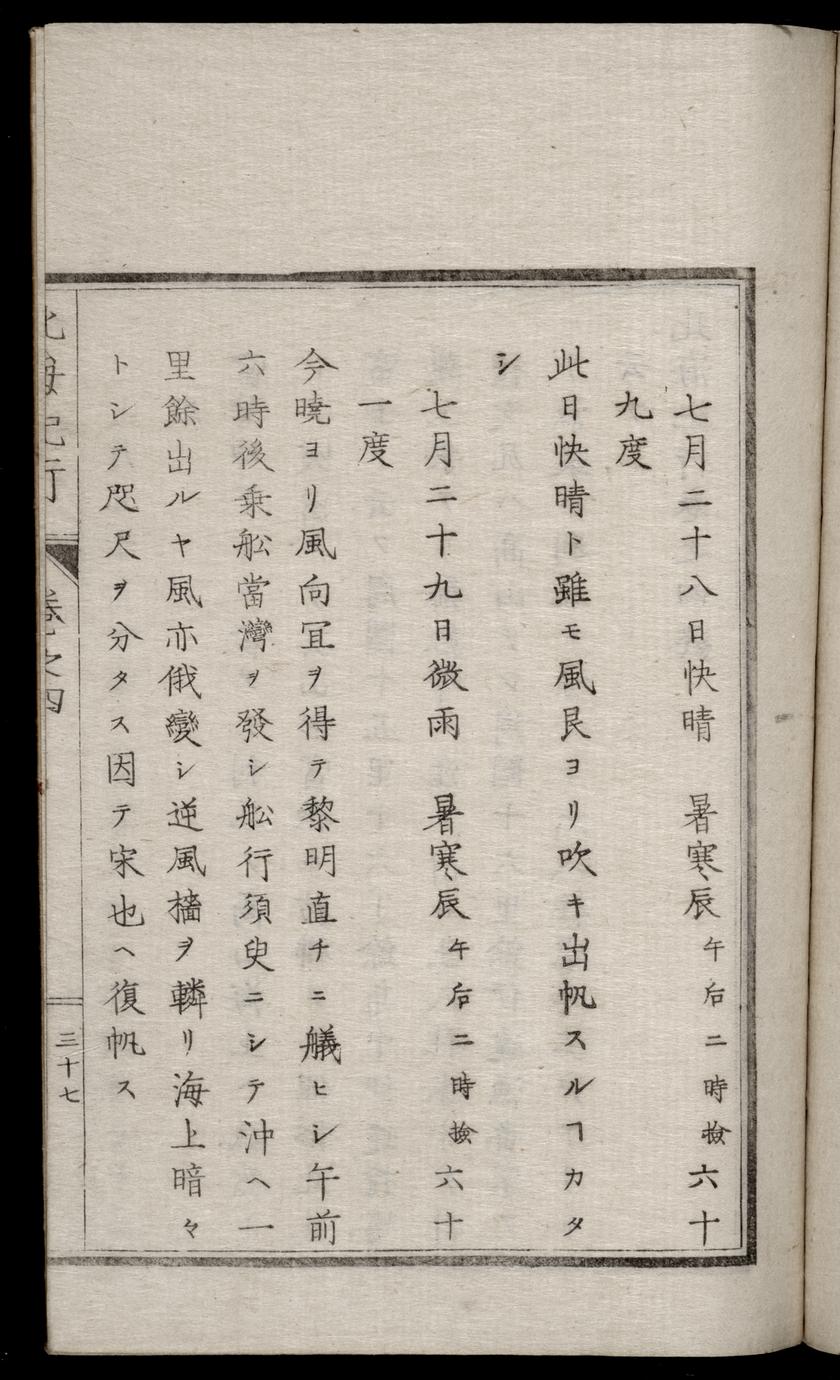 七月二十八日快晴　暑寒辰午后二時撿六十
九度
此日快晴ト雖モ風艮ヨリ吹キ出帆スルヿカタ
シ
七月二十九日微雨　暑寒辰午后二時撿六十
一度
今曉ヨリ風向冝ヲ得テ黎明直チニ艤ヒシ午前
六時後乗舩當灣ヲ發シ舩行須臾ニシテ沖ヘ一
里餘出ルヤ風亦俄變シ逆風檣ヲ轔リ海上暗々
トシテ咫尺ヲ分タス因テ宋也ヘ復帆ス
北海紀行
卷之四
三十七